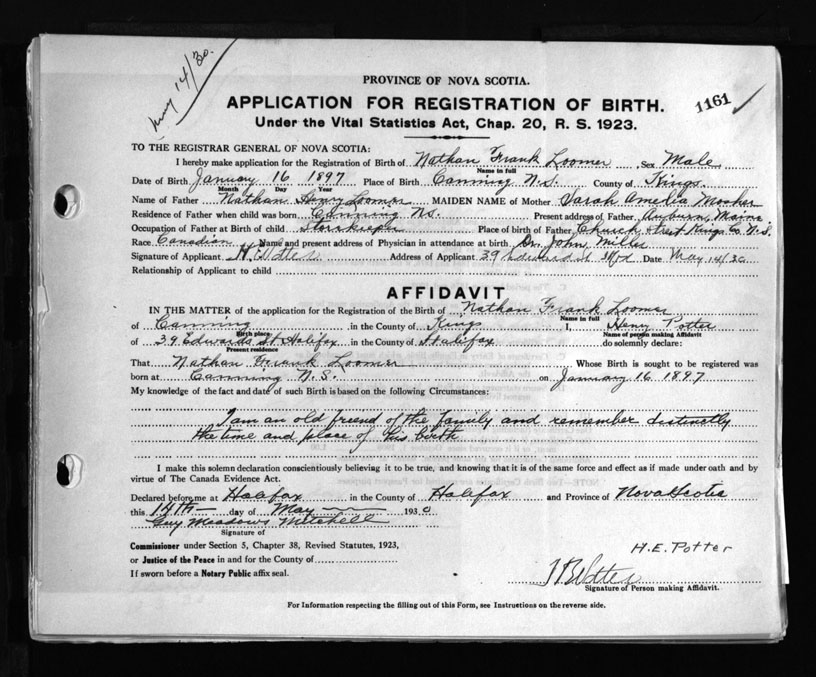 May 14/30.
PROVINCE OF NOVA SCOTIA.
1161
APPLICATION FOR REGISTRATION OF BIRTH.
Under the Vital Statistics Act, Chap. 20, R. S. 1923.
TO THE REGISTRAR GENERAL OF NOVA SCOTIA:
I hereby make application for the Registration of Birth of Nathan Frank Loomer Sex Male
Name in full
Date of Birth January 16 1897 Place of Birth Canning N.S. County of Kings.
Month Day Year
Name of Father Nathan Henry Loomer MAIDEN NAME of Mother Sarah Amelia Mosher
Residence of Father when child was born Canning NS. Present address of Father Auburn, Maine
Occupation of Father at Birth of child Storekeeper Place of birth of Father Church Street Kings Co. N.S.
Race Canadian Name and present address of Physician in attendance at birth Dr. John Miller
Signature of Applicant Address of Applicant 39 Date May 14/30
Relationship of Applicant to child
AFFIDAVIT
IN THE MATTER of the application for the Registration of the Birth of Nathan Frank Loomer
Name in full
of Canning in the County of Kings I, Henry Potter
Birth place Name of person making Affidavit
of 39 Edwards St Halifax in the County of Halifax do solemnly declare:
Present residence
That Nathan Frank Loomer Whose Birth is sought to be registered was
born at Canning N.S. on January 16 1897
My knowledge of the fact and date of such Birth is based on the following Circumstances:
I am an old friend of the family and remember distinctly
the time and place of his birth
I make this solemn declaration conscientiously believing it to be true, and knowing that it is of the same force and effect as if made under oath and by
virtue of The Canada Evidence Act.
Declared before me at Halifax in the County of Halifax and Province of Nova Scotia
this 14th day of May 1930
Guy Meadows Mitchell
Signature of
Commissioner under Section 5, Chapter 38, Revised Statutes, 1923,
or Justice of the Peace in and for the County of
If sworn before a Notary Public affix seal.
H.E. Potter
Signature of Person making Affidavit.
For Information respecting the filling out of this Form, see Instructions on the reverse side.